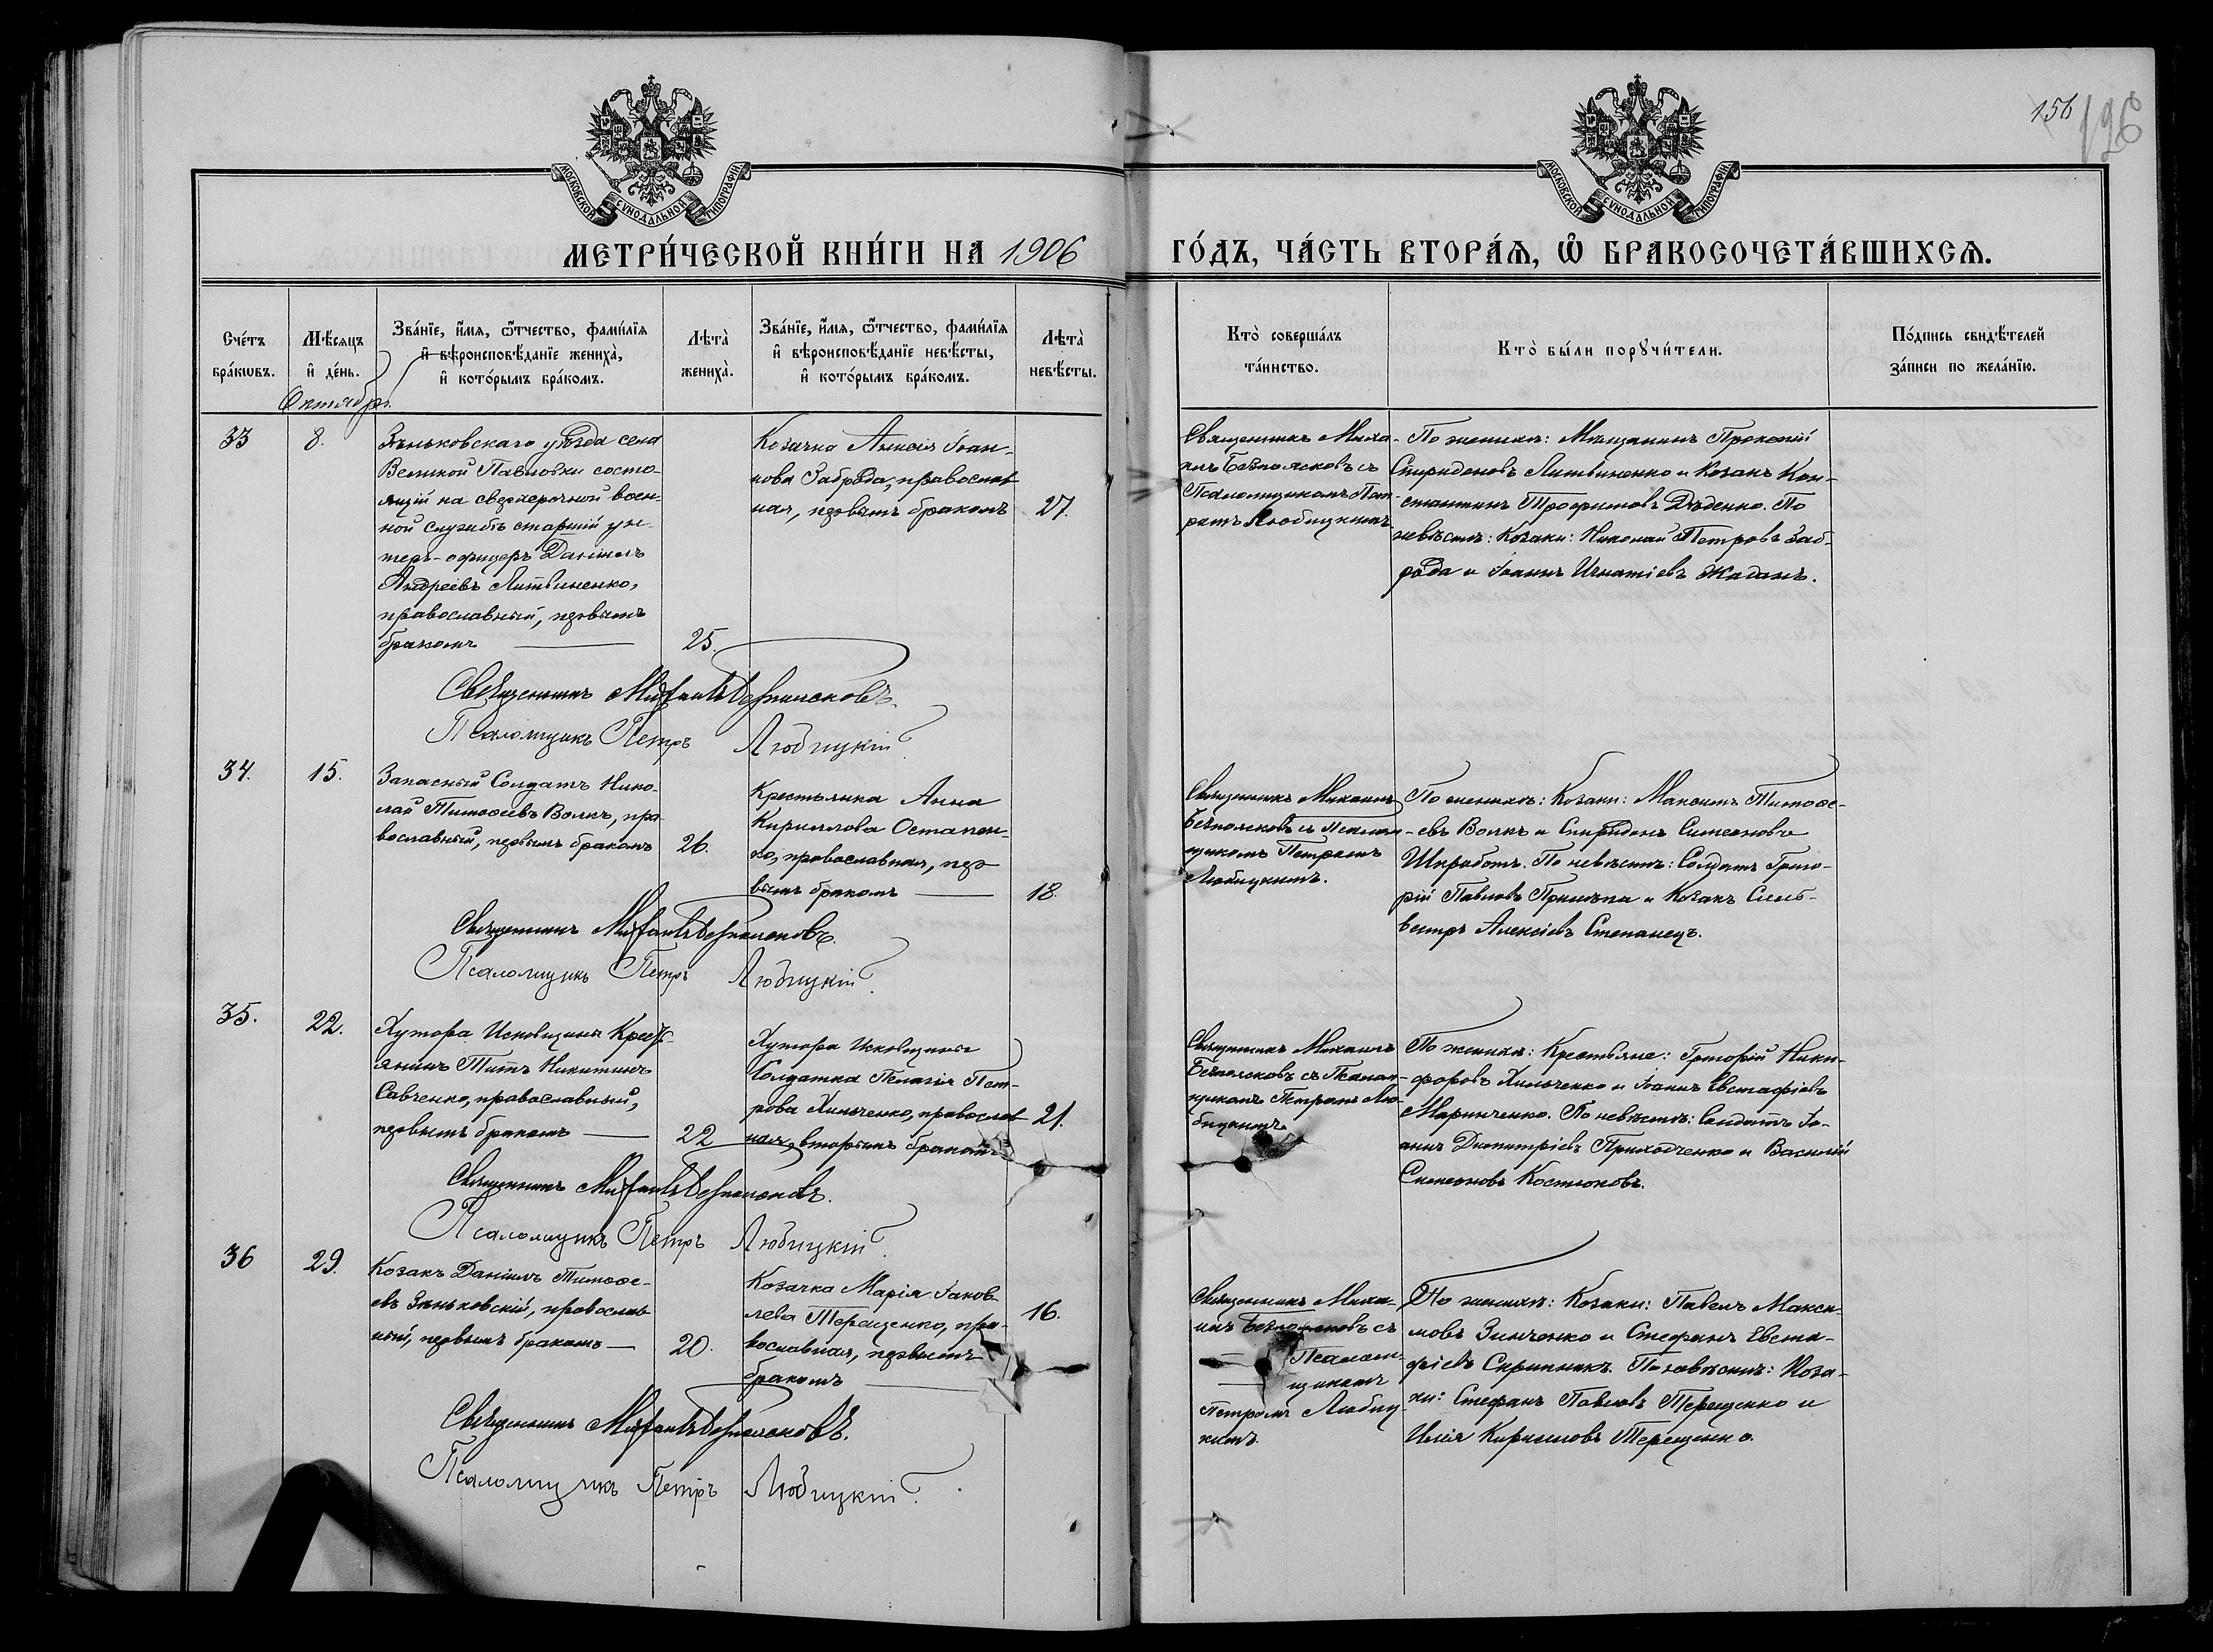 156
126
МОСКОВСКОЙ СѴНОДАЛЬНОЙ ТИПОГРАФІИ
МОСКОВСКОЙ СѴНОДАЛЬНОЙ ТИПОГРАФІИ
МЕТРИ́ЧЕСКОЙ КНИ́ГИ НА 1906
ГО́ДЪ, ЧА́СТЬ ВТОРА́Ѧ, Ѡ҆ БРАКОСОЧЕТА́ВШИХСѦ.
Сче́тъ
бра́кωвъ.
Мѣ́сяцъ
и҆ де́нь.
Октябрь.
Зва́нїе, и҆́мѧ, ѻ҆́тчество, фами́лїѧ
и҆ вѣроисповѣ́данїе жениха̀,
и҆ кото́рымъ бра́комъ.
Лѣта̀
жениха̀.
Зва́нїе, и҆́мѧ, ѻ҆́тчество, фами́лїѧ
и҆ вѣроисповѣ́данїе невѣ́сты,
и҆ кото́рымъ бра́комъ.
Лѣта̀
невѣ́сты.
Кто̀ соверша́лъ
та́инство.
Кто̀ бы́ли порꙋчи́тели.
По́дпись свидѣ́телей
за́писи по жела́нїю.
33
8.
Зѣньковскаго уѣзда села
Великой Павловки состо-
ящій на сверхсрочной воен-
ной службѣ старшій ун-
теръ-офицеръ Даніилъ
Андреевъ Литвиненко,
православный, первымъ
бракомъ
25.
Козачка Анисія Іоан-
нова Заброда, православ
ная, первымъ бракомъ
27.
Священникъ Миха-
илъ Безпоясковъ съ
Псаломщикомъ Пет-
ромъ Любицкимъ
По женихѣ: Мѣщанинъ Прокопій
Спиридоновъ Литвиненко и Козакъ Кон-
стантинъ Трофимовъ Дѣденко. По
невѣстѣ: Козаки: Николай Петровъ Заб-
рода и Іоаннъ Игнатіевъ Жаданъ.
Священникъ Михаилъ Безпоясковъ.
Псаломщикъ Петръ Любицкій
34.
15.
Запасный Солдатъ Нико-
лай Тимоѳеевъ Волкъ, пра
вославный, первымъ бракомъ
26.
Крестьянка Анна
Кириллова Остапен-
ко, православная, пер
вымъ бракомъ
18.
Священникъ Михаилъ
Безпоясковъ съ Псалом-
щикомъ Петромъ
Любицкимъ.
По женихѣ: Козаки: Максимъ Тимоѳе-
евъ Волкъ и Спиридонъ Симеоновъ
По невѣстѣ: Солдатъ Григо-
рій Павловъ и Козакъ Силь-
вестръ Алексіевъ Степанецъ.
Священникъ Михаилъ Безпоясковъ.
Псаломщикъ Петръ Любицкій.
35.
22.
Хутора Исковщины Крестъ-
янинъ Титъ Никитинъ
Савченко, православный,
первымъ бракомъ
22
Хутора Исковщины
Солдатка Пелагія Пет-
рова Хильченко, православ
ная, вторымъ бракомъ
21.
Священникъ Михаилъ
Безпоясковъ съ Псалом-
щикомъ Петромъ Лю-
бицкимъ
По женихѣ: Крестьяне: Григорій Ники-
форовъ Хильченко и Іоаннъ Евстафіевъ
Маринченко. По невѣстѣ: Солдатъ Іо-
аннъ Димитріевъ Приходченко и Василій
Симеоновъ Костюковъ.
Священникъ Михаилъ Безпоясковъ.
Псаломщикъ Петръ Любицкій.
36
29.
Козакъ Даніилъ Тимоѳе-
евъ Зѣньковскій, православ
ный, первымъ бракомъ
20.
Козачка Марія Іаков-
лева Терещенко, пра-
вославная, первымъ
бракомъ
16.
Священникъ Миха-
илъ Безпоясковъ съ
Псалом-
щикомъ
Петромъ Любиц-
кимъ.
По женихѣ: Козаки: Павелъ Макси-
мовъ Зинченко и Стефанъ Евста-
фіевъ Скрипникъ. По невѣстѣ: Коза-
ки: Стефанъ Павловъ Терещенко и
Илія Кирилловъ Терещенко.
Священникъ Михаилъ Безпоясковъ.
Псаломщикъ Петръ Любицкій.